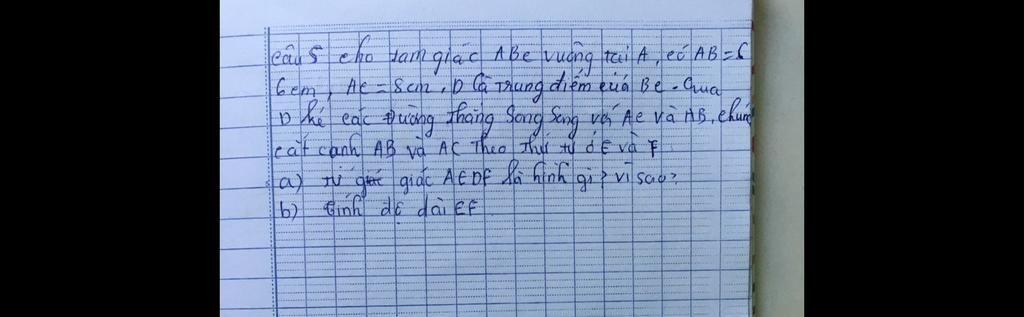 câu 5 cho tam giác ABC vuông tại A, có AB = 6
6cm, AC = 8cm, D là trung điểm của BC. Qua
D kẻ các đường thẳng song song với AC và AB, chúng
cắt cạnh AB và AC theo thứ tự ở E và F
a) tứ giác AEDF là hình gì? vì sao?
b) tính độ dài EF